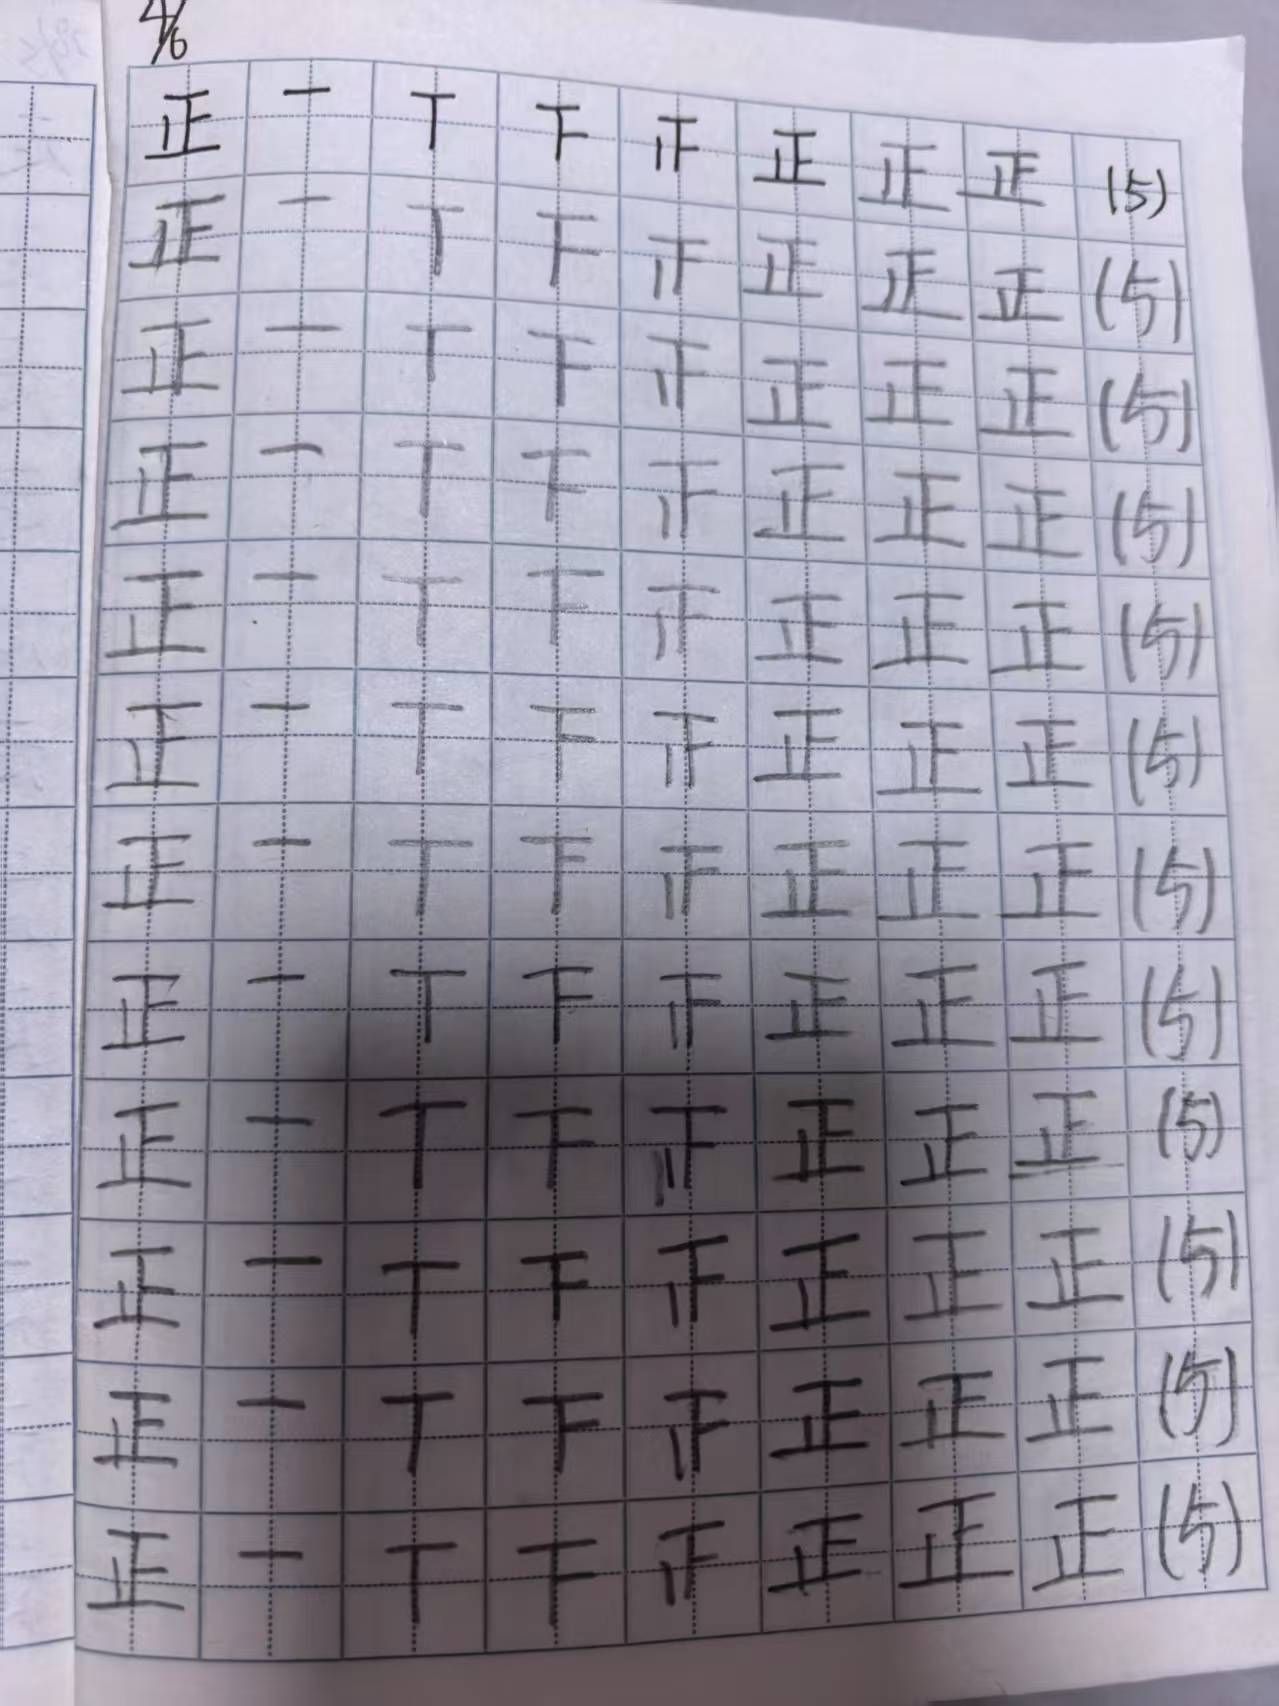 4/6
正 一 丅 下 正 正 正 正 (5)
正 一 丅 下 正 正 正 正 (5)
正 一 丅 下 正 正 正 正 (5)
正 一 丅 下 正 正 正 正 (5)
正 一 丅 下 正 正 正 正 (5)
正 一 丅 下 正 正 正 正 (5)
正 一 丅 下 正 正 正 正 (5)
正 一 丅 下 正 正 正 正 (5)
正 一 丅 下 正 正 正 正 (5)
正 一 丅 下 正 正 正 正 (5)
正 一 丅 下 正 正 正 正 (5)
正 一 丅 下 正 正 正 正 (5)